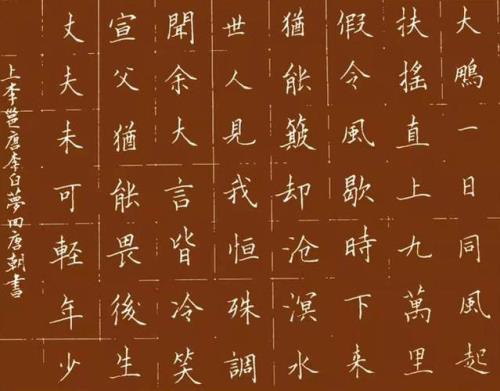 大鵬一日同風起
扶搖直上九萬里
假令風歇時下来
猶能簸却滄溟水
世人見我恒殊調
聞余大言皆冷笑
宣父猶能畏後生
丈夫未可軽年少
上李邕唐李白夢回唐朝書